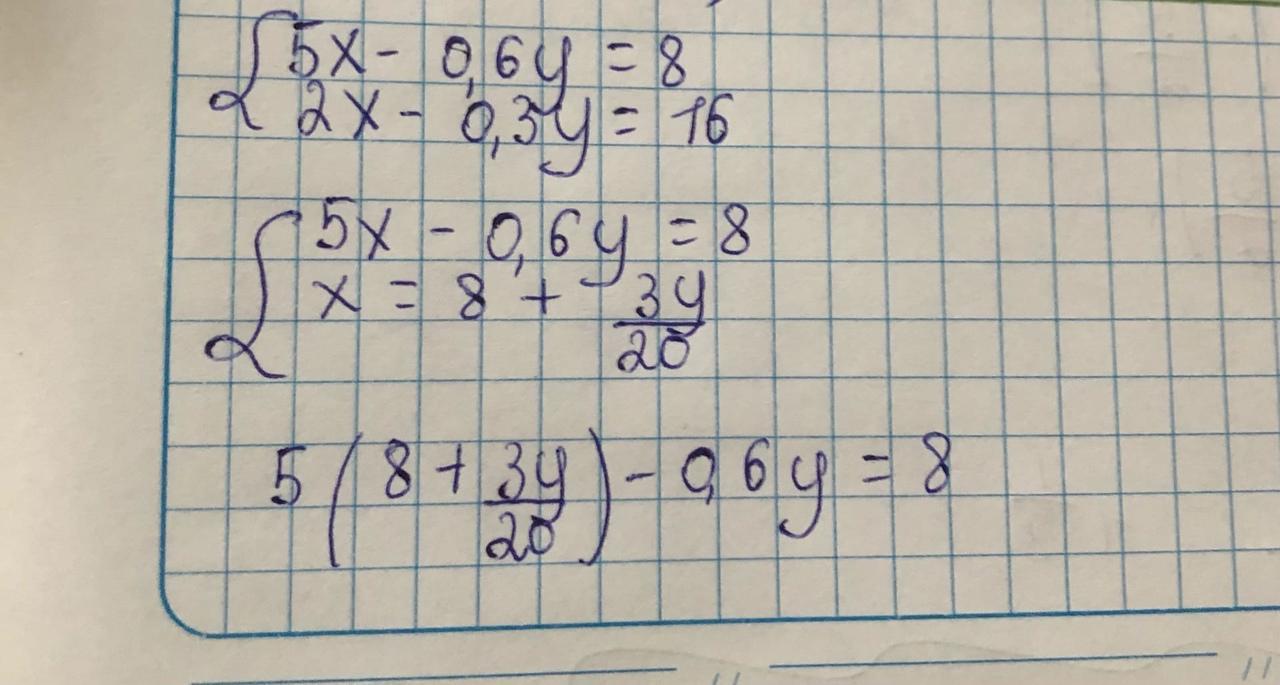 {5x - 0,6y = 8
2x - 0,3y = 16
{5x - 0,6y = 8
x = 8 + 3y/20
5(8 + 3y/20) - 0,6y = 8